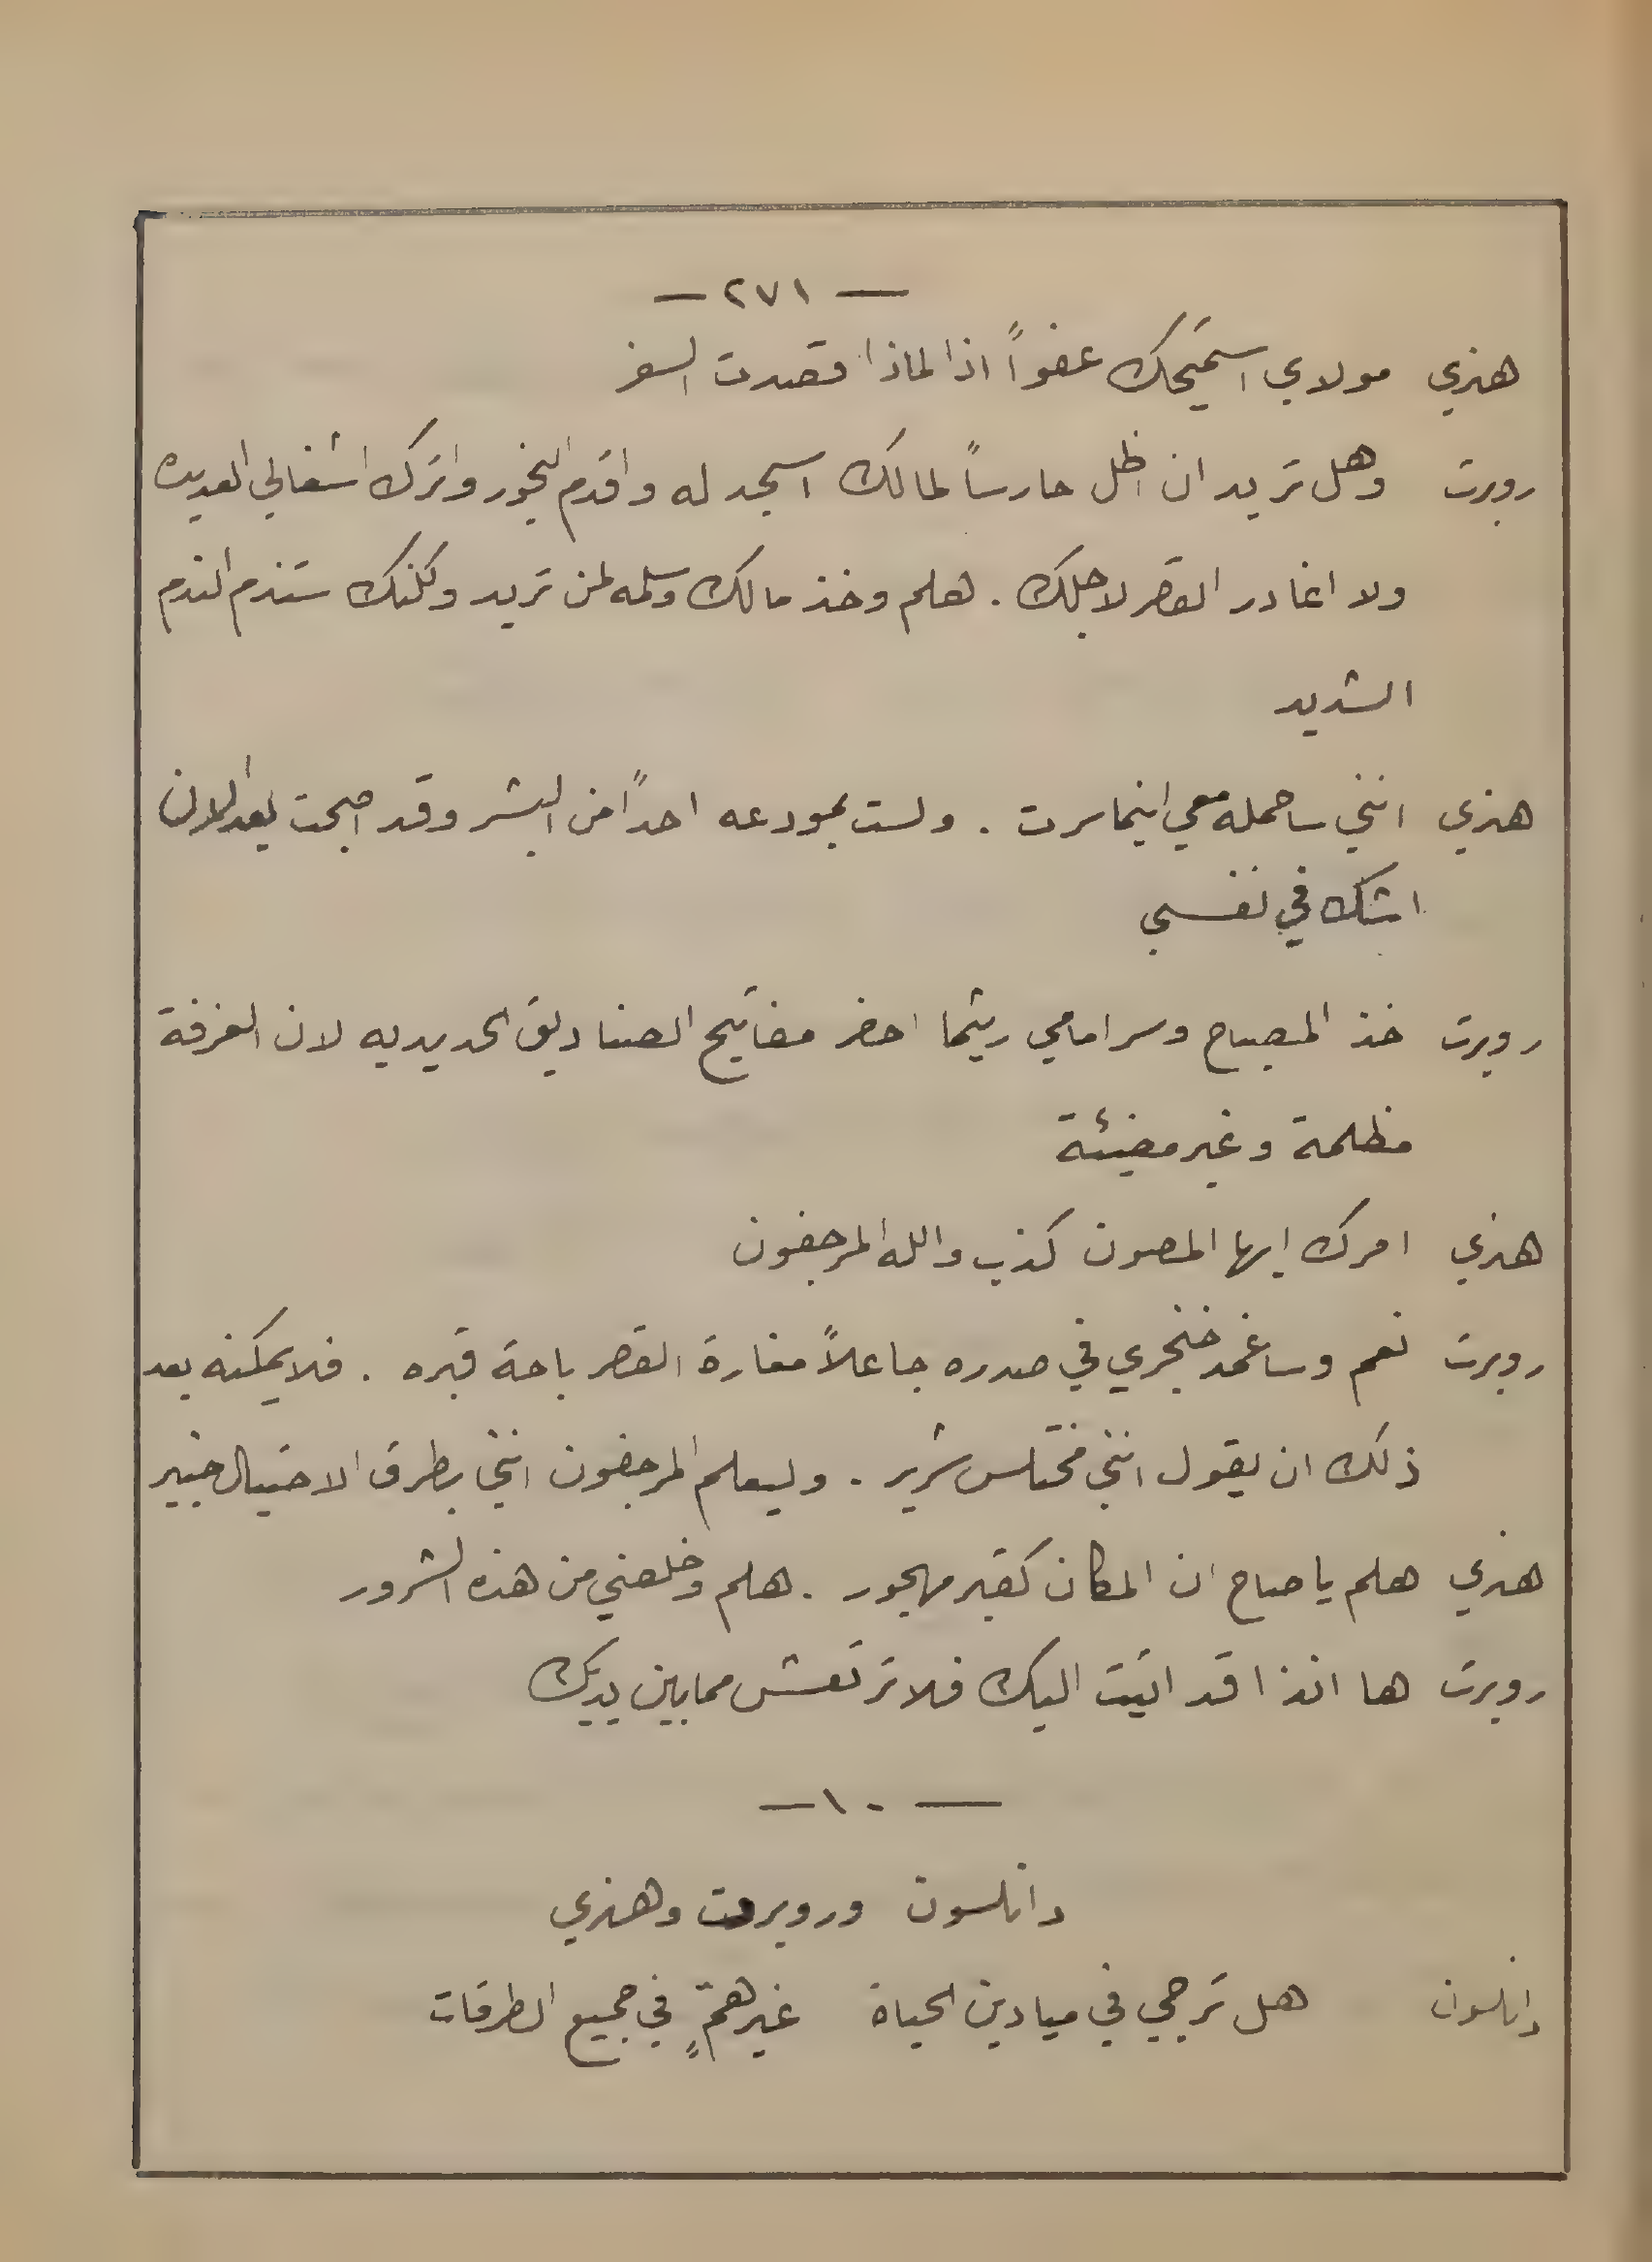 — ٢٧١ —
هنري مولاي استميحك عفواً اذا لماذا قصدت السفر
روبرت وهل تريد ان اظل حارساً لمالك اسجد له واقدم البخور واترك اشغالي العديده
ولا اغادر القصر لاجلك . هلم وخذ مالك وسلمه لمن تريد ولكنك ستندم الندم
الشديد
هنري انني ساحمله معي اينما سرت . ولست بمودعه احداً من البشر وقد اصبحت بعد الان
اشك في نفسي
روبرت خذ المصباح وسر امامي ريثما احضر مفاتيح الصناديق الحديديه لان الغرفة
مظلمة وغير مضيئة
هنري امرك ايها المصون كذب والله المرجفون
روبرت نعم وساغمد خنجري في صدره جاعلاً مغارة القصر باحة قبره . فلا يمكنه بعد
ذلك ان يقول انني مختلس شرير . وليعلم المرجفون انني بطرق الاحتيال خبير
هنري هلم يا صاح ان المكان كقبر مهجور . هلم وخلصني من هذه الشرور
روبرت ها انذا قد اتيت اليك فلا ترتعش مما بين يديك
— ١٠ —
دانلسون وروبرت وهنري
دانلسون هل ترجي في ميادين الحياة غير همٍّ في جميع الطرقات